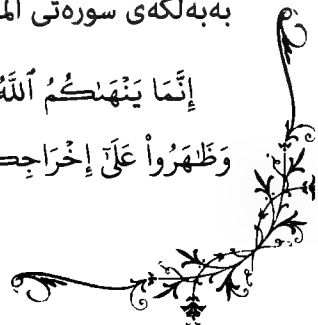 بەبەڵگەی سورەتی الم
إِنَّمَا يَنْهَىٰكُمُ ٱللَّهُ
وَظَٰهَرُوا۟ عَلَىٰٓ إِخْرَاجِكـ